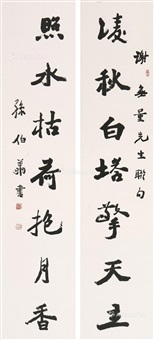 凌秋白塔擎天立
谢无量先生联句
照水枯荷抱月香
孙伯翔书